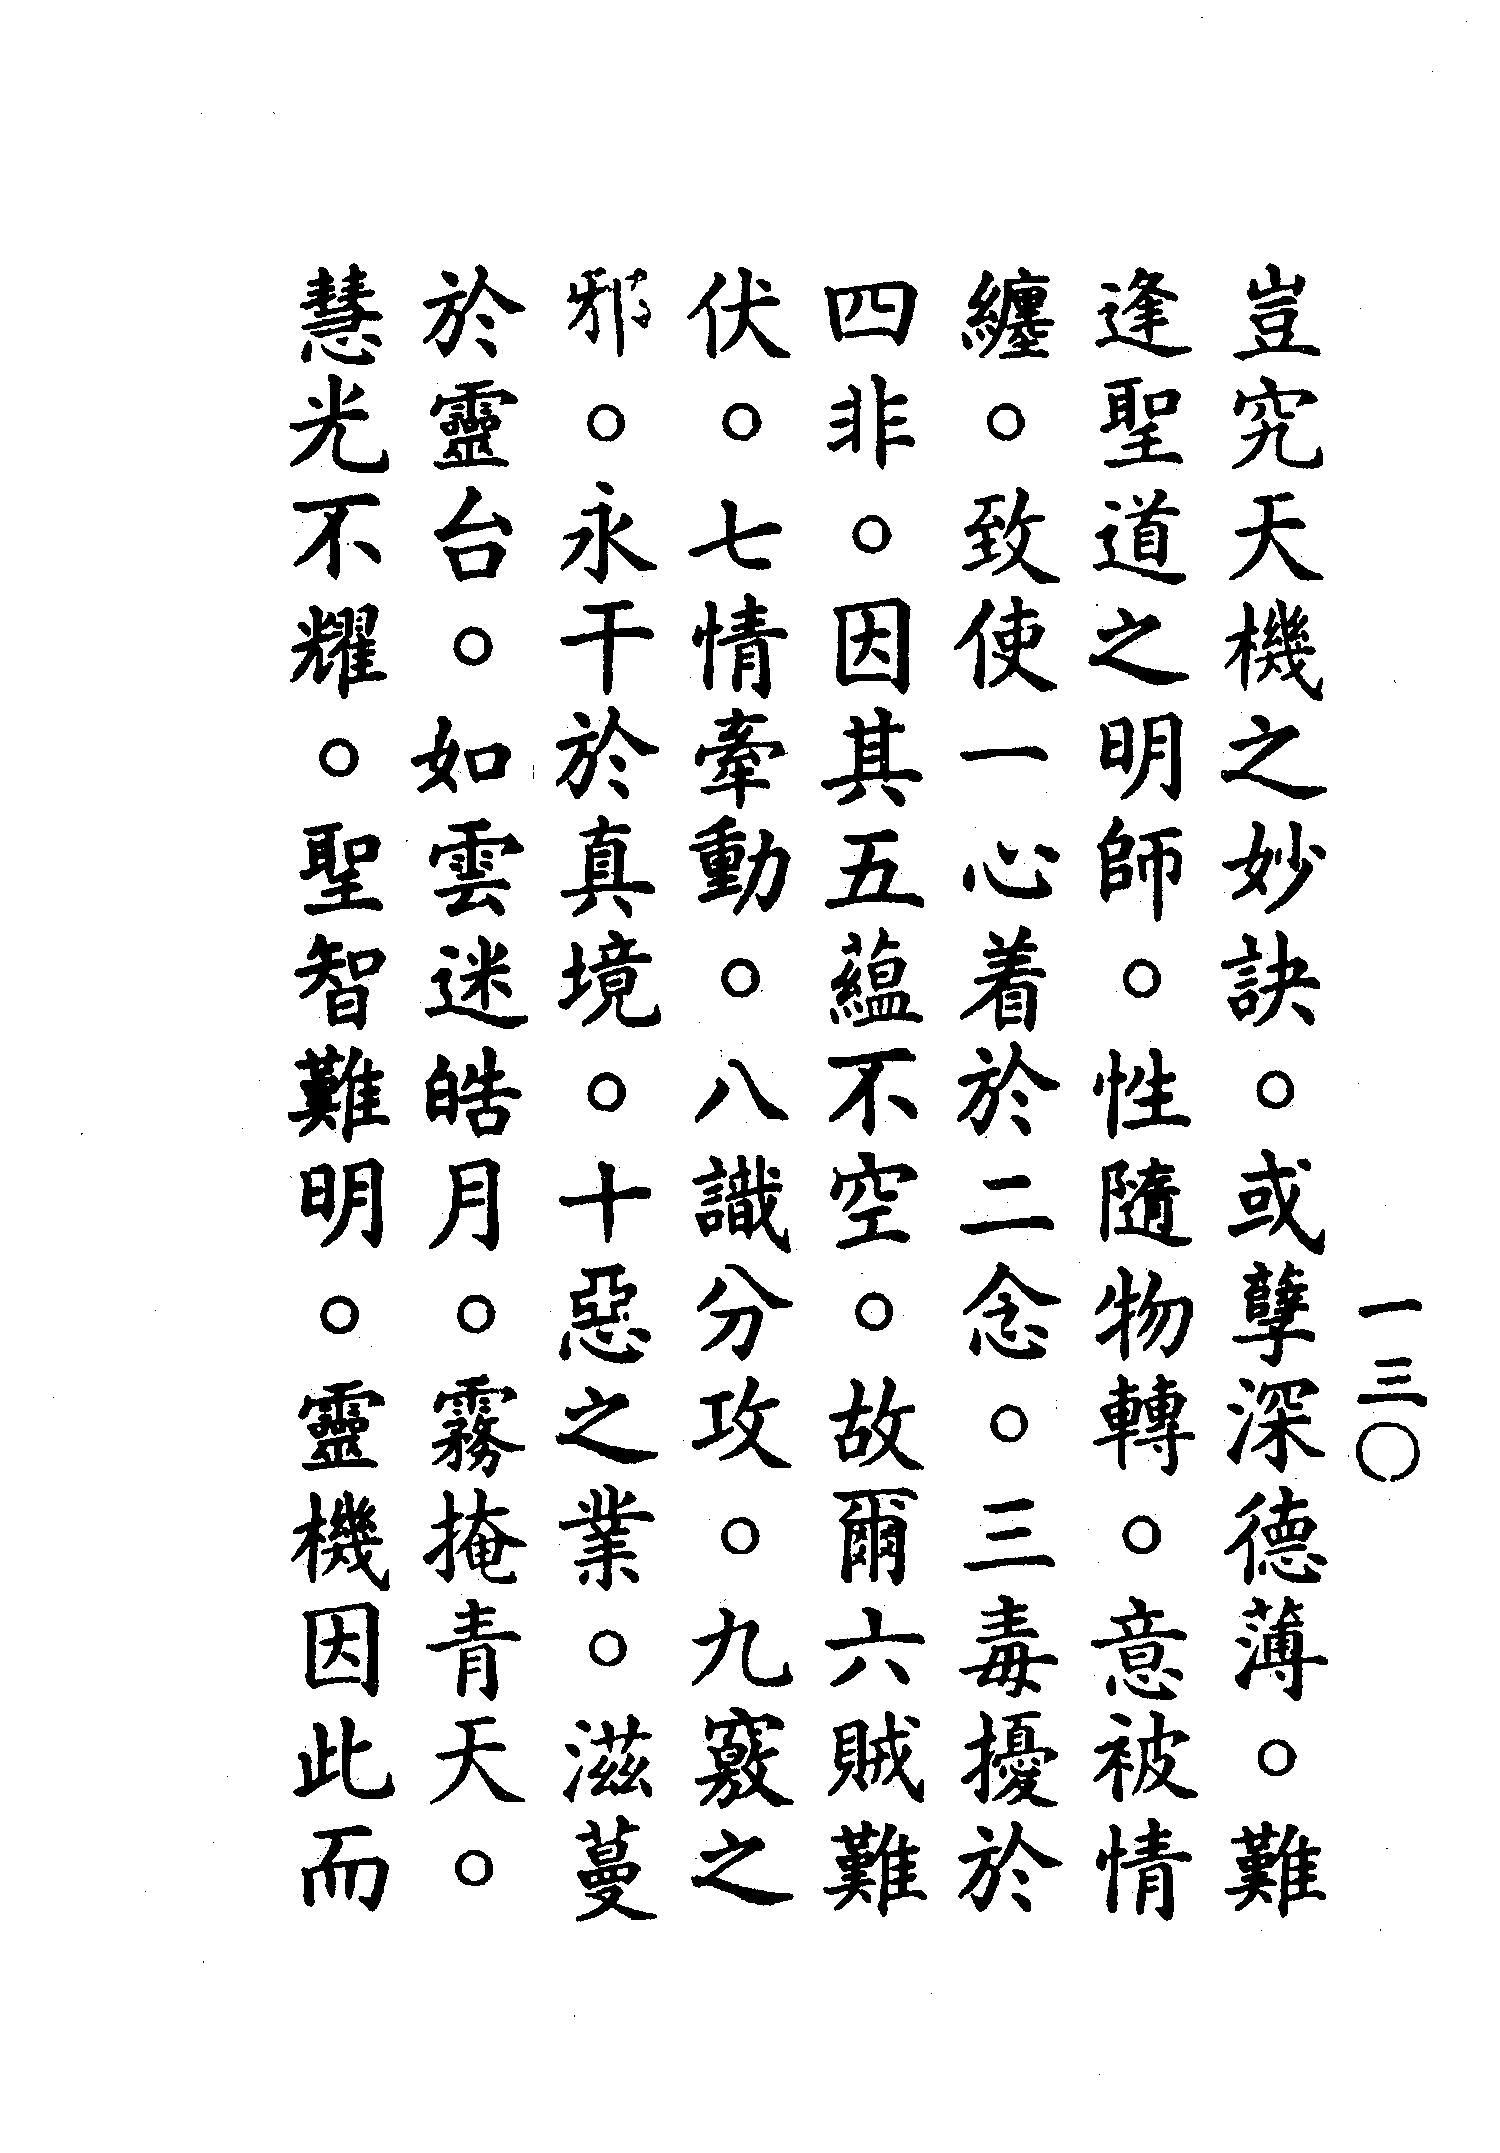 一三〇
豈究天機之妙訣。或孽深德薄。難
逢聖道之明師。性隨物轉。意被情
纏。致使一心着於二念。三毒擾於
四非。因其五蘊不空。故爾六賊難
伏。七情牽動。八識分攻。九竅之
邪。永干於真境。十惡之業。滋蔓
於靈台。如雲迷皓月。霧掩青天。
慧光不耀。聖智難明。靈機因此而